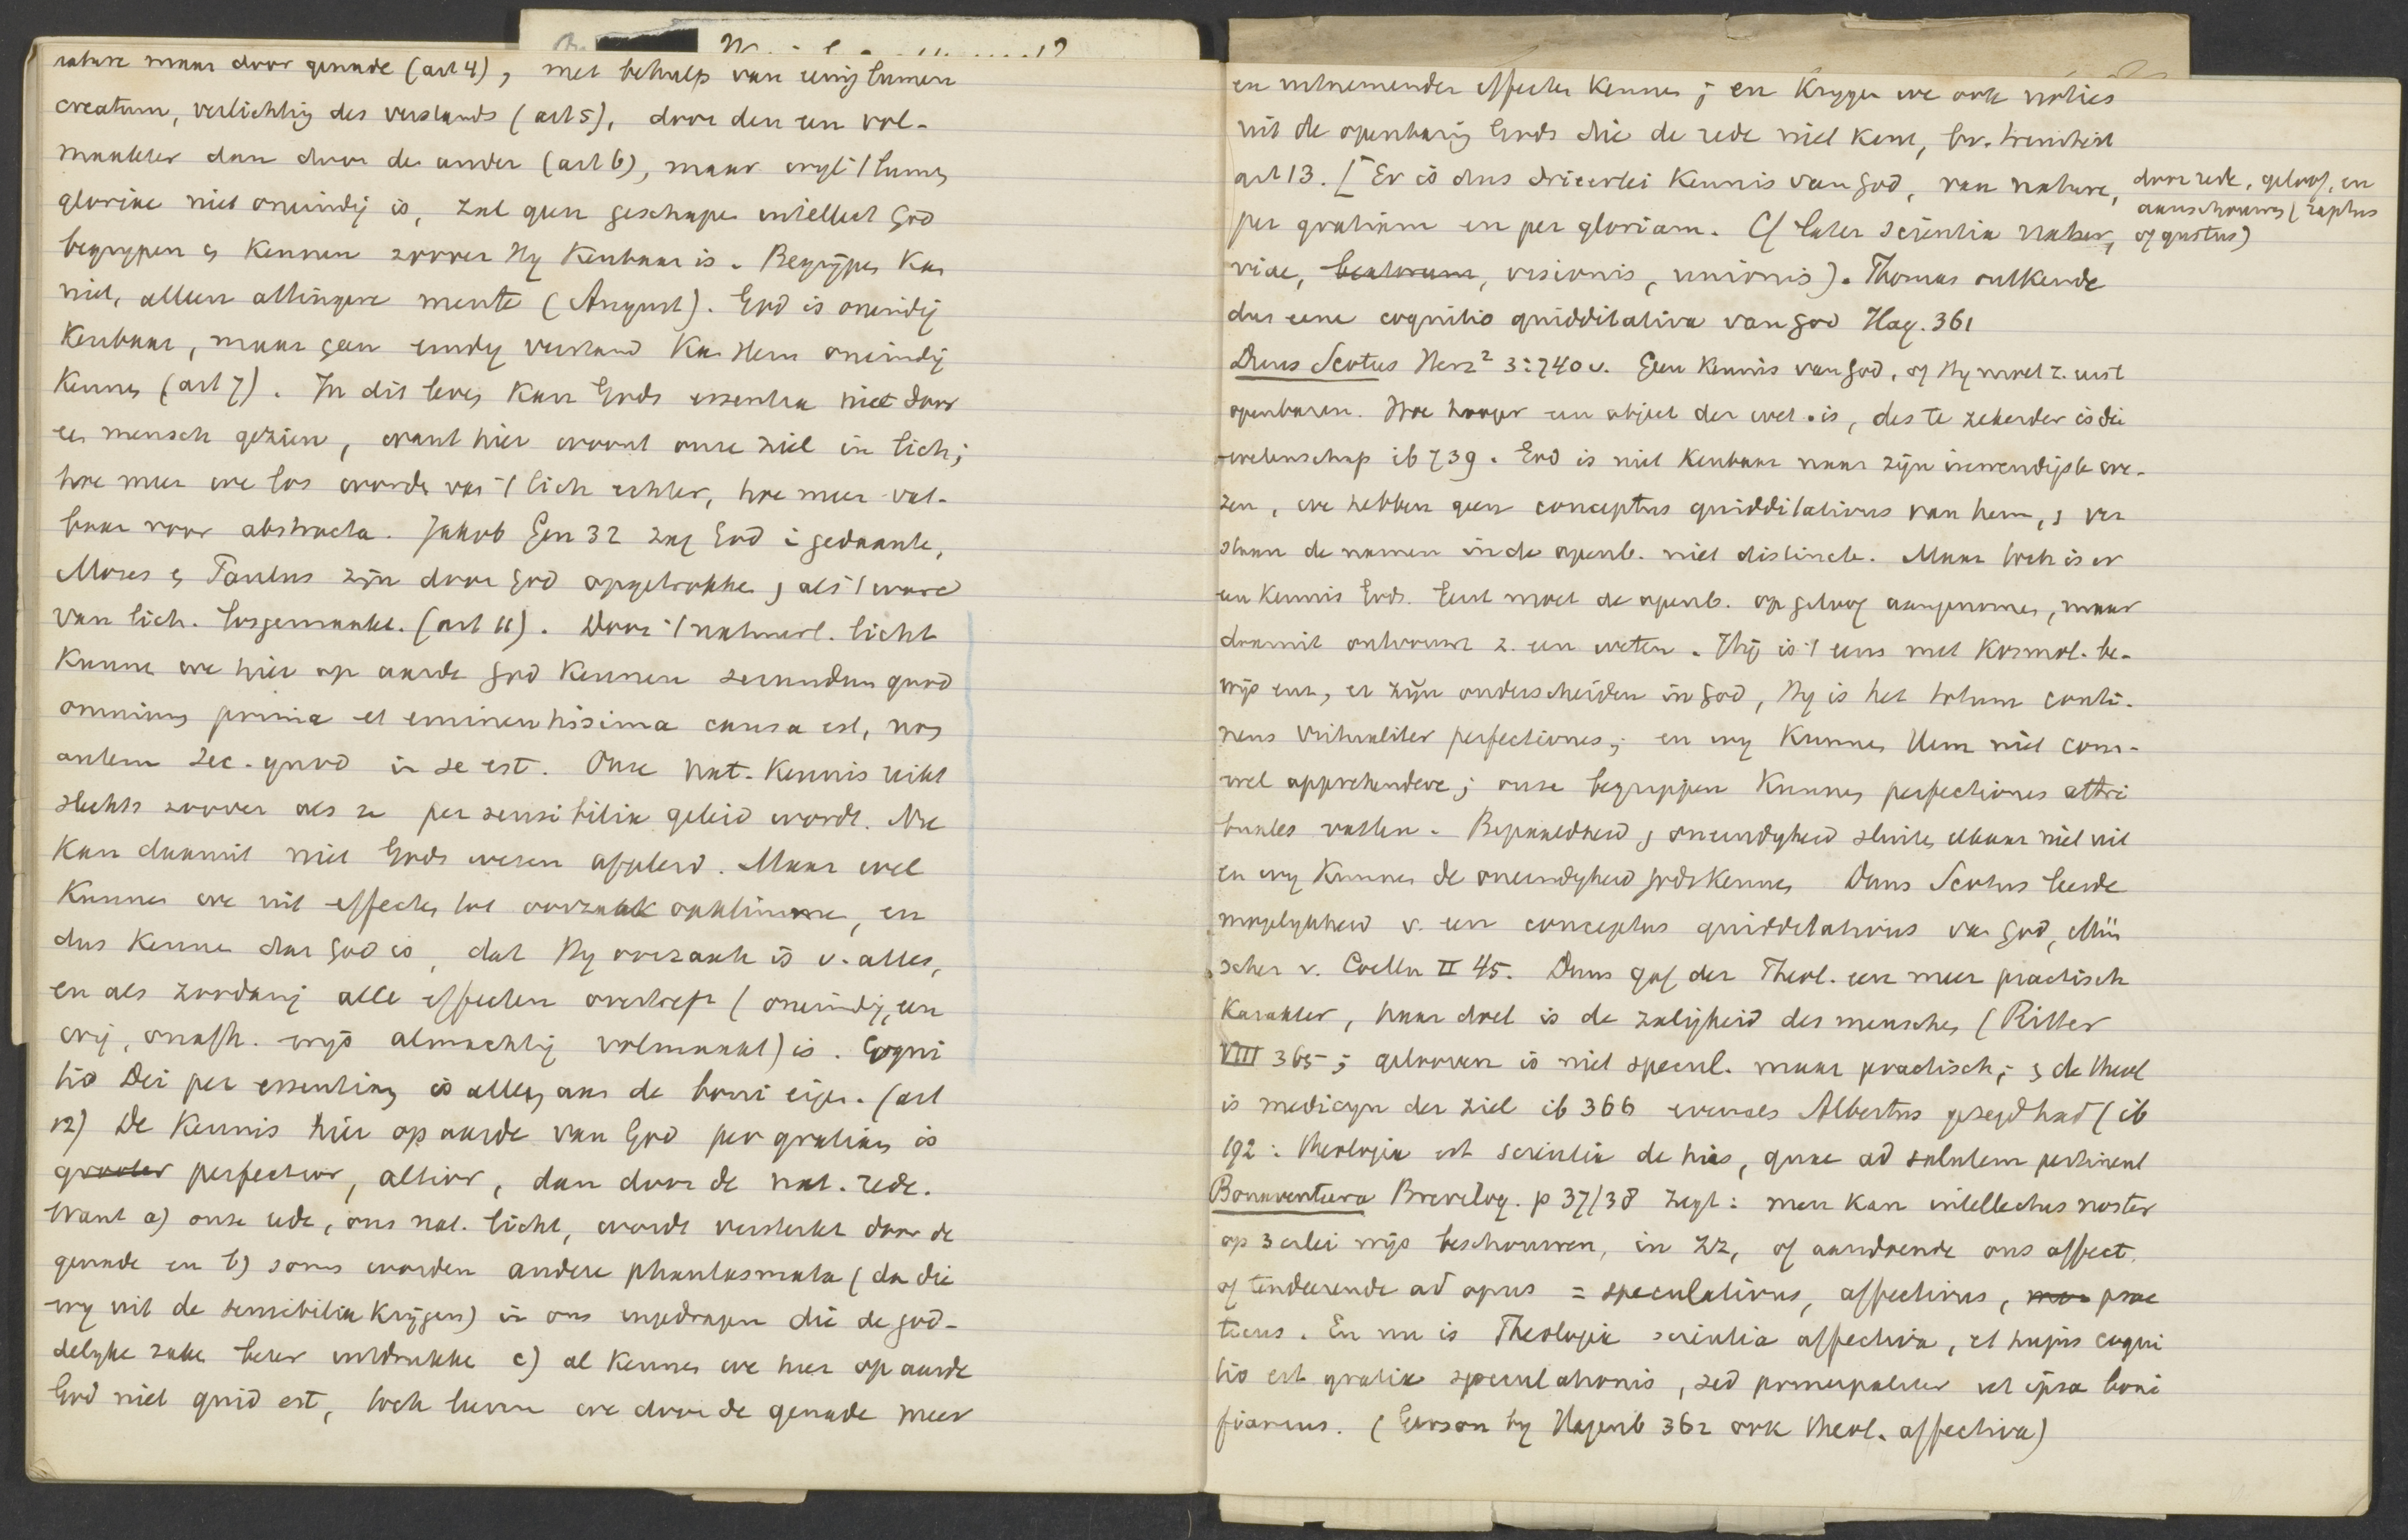 nature maar door genade (art 4), met behulp van eenig lumen
creatum, verlichting des verstands (art 5), door den een vol-
maakter dan door de ander (art 6), maar wyl 't lumen
gloriae niet oneindig is, zal geen geschapen intellect God
begrypen en kennen zoover Hy kenbaar is. Begrypen kan
niet, alleen attingere mente (August). God is oneindig
kenbaar, maar geen eindig verstand kan Hem oneindig
kennen (art 7). In dit leven kan Gods essentia niet door
een mensch gezien, want hier woont onze ziel in lich;
hoe meer we los worden van 't lich echter, hoe meer vat-
baar voor abstracta. Jakob Gen 32 zag God in gedaante,
Mozes en Paulus zijn door God opgetrokken, als 't ware
van lich. losgemaakt. (art 11). Door 't natuurl. licht
kunnen we hier op aarde God kennen secundum quod
omnium prima et eminentissima causa est, non
autem sec. quod in se est. Onze nat. kennis reikt
slechts zoover als ze per sensibilia geleid wordt. Nu
kan daaruit niet Gods wezen afgeleid. Maar wel
kunnen we uit effecten tot oorzaak opklimmen, en
dus kennen dat God is, dat Hy oorzaak is v. alles,
en als zoodanig alle effecten overtreft (oneindig, een
wig, onafh. wijs almachtig volmaakt) is. Cogni
tio Dei per essentiam is alleen aan de boni eigen. (art
12) De kennis hier op aarde van God per gratiam is
grooter perfectior, altior, dan door de nat. rede.
Want a) onze rede, ons nat. licht, wordt versterkt door de
genade en b) soms worden andere phantasmata (dan die
wy uit de sensibilia krijgen) in ons ingedragen die de god-
delyke zaken beter uitdrukken c) al kennen we hier op aarde
God niet quid est, toch leeren we door de genade meer
en uitnemender effecten kennen; en krygen we ook noties
uit de openbaring Gods die de rede niet kent, bv. drieeenheid
art 13. [Er is dus drieerlei kennis van God, van nature,
door rede, geloof, en
aanschouwing (raptus
of gustus)
per gratiam en per gloriam. Cf later scientia naturae,
viae, beatorum, visionis, unionis). Thomas ontkende
dus eene cognitio quidditativa van God Hag. 361
Duns Scotus Herz² 3:740 v. Geen kennis van God, of Hy moet z. eerst
openbaren. Hoe hooger een object der wet. is, des te zekerder is die
wetenschap ib 739. God is niet kenbaar naar zijn inwendigste we-
zen, we hebben geen conceptus quidditativus van hem, en ver
staan de namen in de openb. niet distincte. Maar toch is er
een kennis Gods. Eerst moet de openb. op geloof aangenomen, maar
daaruit ontwikkelt z. een weten. Hij is 't eens met kosmol. be-
wijs enz, er zijn onderscheiden in God, Hy is het totum conti-
nens virtualiter perfectiones; en wy kunnen Hem niet com-
wel apprehendere; onze begrippen kunnen perfectiones attri
butales vatten. Bepaaldheid en oneindigheid sluiten elkaar niet uit
en wy kunnen de oneindigheid Gods kennen Duns Scotus leerde
mogelykheid v. een conceptus quidditativus van God, Mün
scher v. Coelln II 45. Duns gaf der Theol. een meer practisch
karakter, haar doel is de zaligheid des menschen (Ritter
VIII 365; gelooven is niet specul. maar practisch; en de theol
is medicyn der ziel ib 366 evenals Albertus gezegd had (ib
192: theologia est scientia de hiis, quae ad salutem pertinent
Bonaventura Breviloq. p 37/38 zegt: men kan intellectus noster
op 3erlei wijs beschouwen, in zz, of aandoende ons affect.
of tendeerende ad opus = speculativus, affectivus, prac
ticus. En nu is Theologia scientia affectiva, et hujus cogni
tio est gratia speculationis, sed principaliter ut ipsa boni
fiamus. (Gerson by Hagenb 362 ook theol. affectiva)